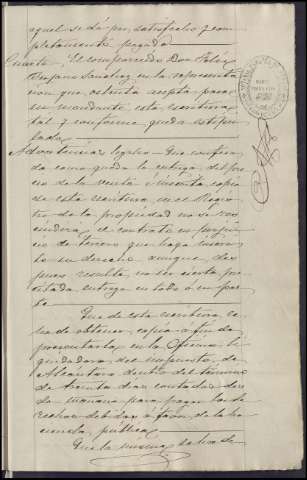 aquel se dá por satisfecho y com-
pletamente pagado
Cuarto. El compareciente Don Felix
Sanchez, en la representa-
ción que ostenta acepta para
su mandante esta escritura
tal y conforme queda esti-
pulada
Advertencias legales. Que confesa-
da como queda la entrega del pre-
cio de la venta é inscrita copia
de esta escritura, en el Regis-
tro de la propiedad no se res-
cindirá el contrato en perjui-
cio de tercero que haya inscri-
to su derecho aunque des-
pues resulte no ser cierta pre-
citada entrega en todo ó en par-
te
Que de esta escritura se
ha de obtener copia á fin de
presentarla en la Oficina li-
quidadora del impuesto, de
Alcántara dentro del término
de treinta dias contados des-
de mañana para pagar los de-
rechos debidos á favor de la ha-
cienda pública
Que la misma se ha de